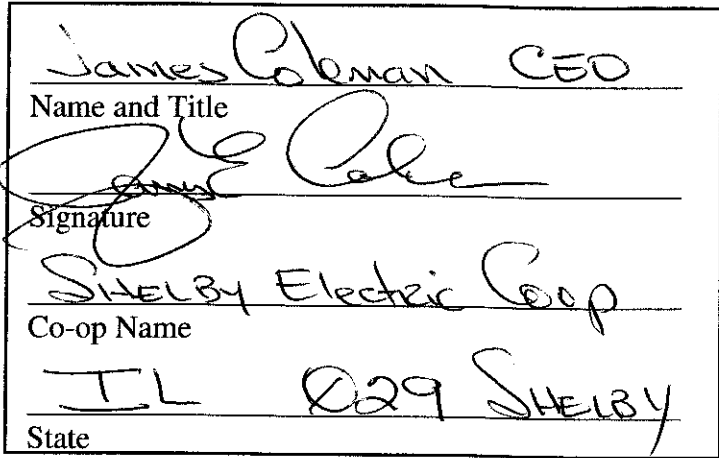 James Coleman CEO
Name and Title
James E Cole
Signature
SHELBY Electric Coop
Co-op Name
IL 029 SHELBY
State